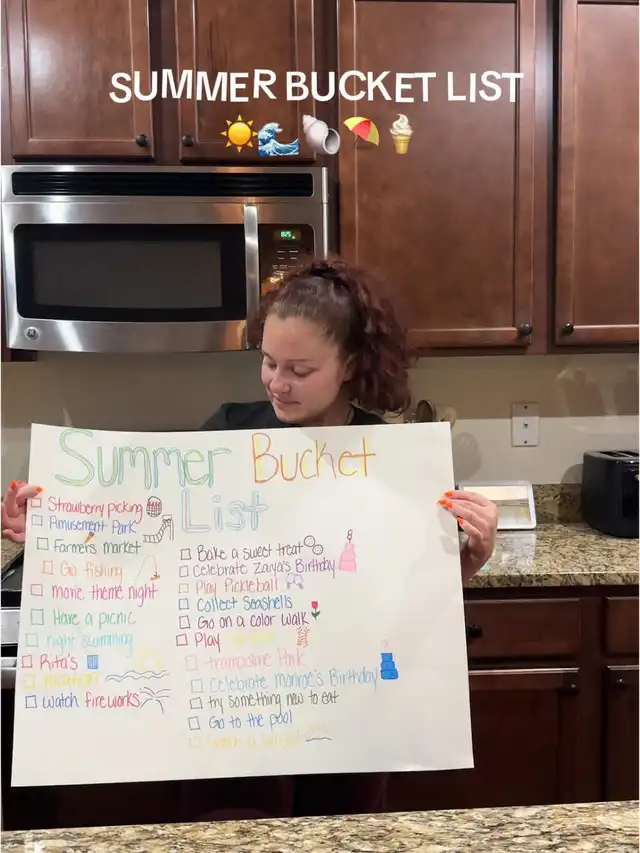 SUMMER BUCKET LIST
8:25
Summer Bucket
List
Strawberry picking
Amusement Park
Farmers market
Go fishing
movie theme night
Have a picnic
night swimming
Rita's
vacation
watch fireworks
Bake a sweet treat
Celebrate Zaiya's Birthday
Play Pickleball
Collect Seashells
Go on a color walk
Play
trampoline Park
Celebrate Monroe's Birthday
try something new to eat
Go to the pool
watch a sunset